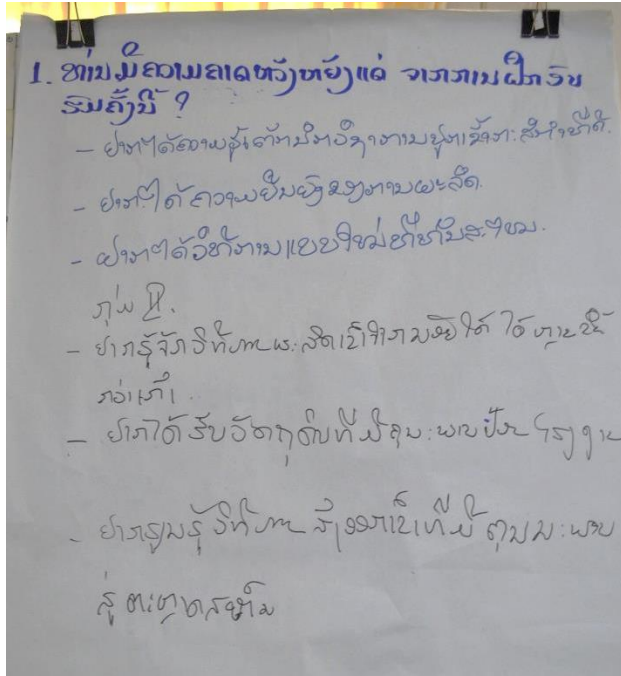 1. ທ່ານມີຄວາມຄາດຫວັງຫຍັງແດ່ ຈາກການຝຶກອົບ
ຮົມຄັ້ງນີ້ ?
- ຢາກໄດ້ຄວາມຮູ້ເຕັກນິກວິຊາການປູກເຂົ້າ
- ຢາກໄດ້ຄວາມຍືນຍົງຂອງການຜະລິດ.
- ຢາກໄດ້ວິທີການແບບໃໝ່ທີ່ທັນສະໄໝ.
ກຸ່ມ II.
- ຢາກຮູ້ຈັກວິທີການຜະລິດເຂົ້າ ໃຫ້ ໄດ້ຫຼາຍຂຶ້ນ
ກວ່າເກົ່າ.
- ຢາກໄດ້ຮັບວັດຖຸດິບທີ່ມີຄຸນະພາບປ້ອນໂຮງງານ
- ຢາກຮຽນຮູ້ວິທີການ ທີ່ມີຄຸນນະພາບ
ສູ່ຕະຫຼາດ